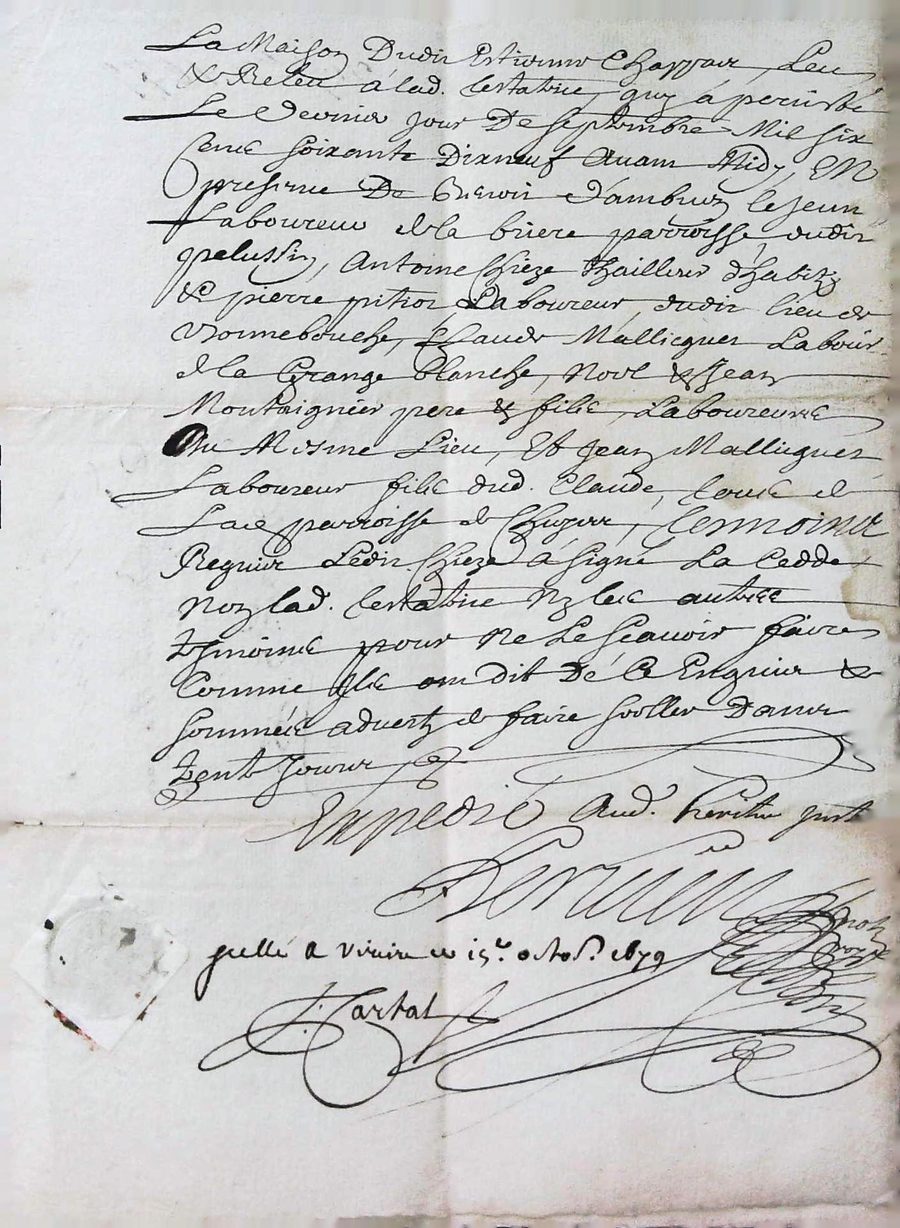 La Maison Dudit Estienne Chappar, Leu
& Releu a lad. testatrice, quy a percisté
Le dernier jour De septembre Mil six
Cens soixante Dixneuf avant Midy, EN
presence De Benoit d'ambuz le jeun
Laboureur de la briere parroisse dudit
pelussin, Antoine Chieze thailleur d'habitz
& pierre pitiot Laboureur dudit lieu de
Bonnebouche, Claude Mallicquet Labour
de la Grange Blanche, Noel & Jean
Montaignier pere & filz, Laboureurs
Du Mesme Lieu, Et Jean Mallicquet
Laboureur filz dud. Claude, tous de
Lad parroisse de Chuyer, tesmoins
Requis Ledit Chieze a signé La Cedde,
Non lad. testatrice Ny les autres
tesmoins pour Ne Le scavoir faire
Comme Ilz ont dit De Ce Enquis &
sommés advertz de faire sceller Dans
trente Jours
Expedié Aud. heritier
scellé a virieu ce 15e. octob. 1679